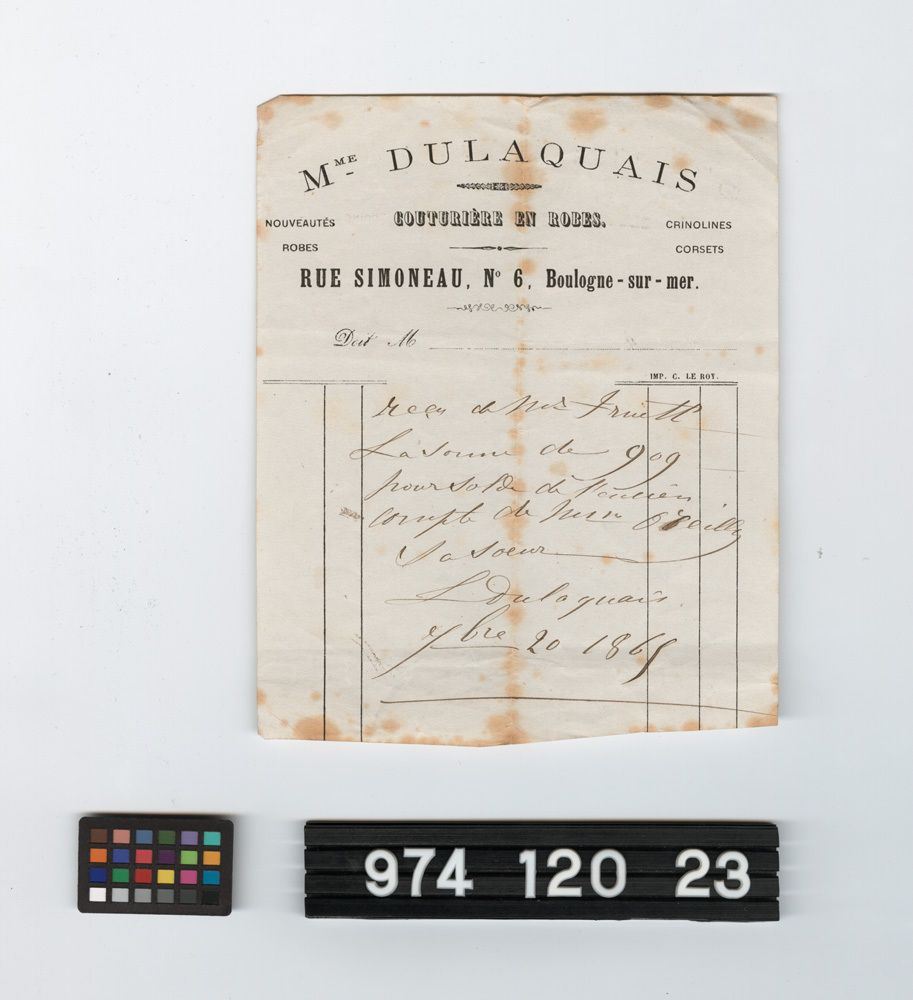 MME DULAQUAIS
COUTURIÈRE EN ROBES.
NOUVEAUTÉS
ROBES
CRINOLINES
CORSETS
RUE SIMONEAU, No 6, Boulogne-sur-mer.
Doit M
IMP. C. LE ROY.
reçu de
La somme de 909
pour solde de
compte de O'Reilly
Sa soeur
L Dulaquais
bre 20 1865
974 120 23